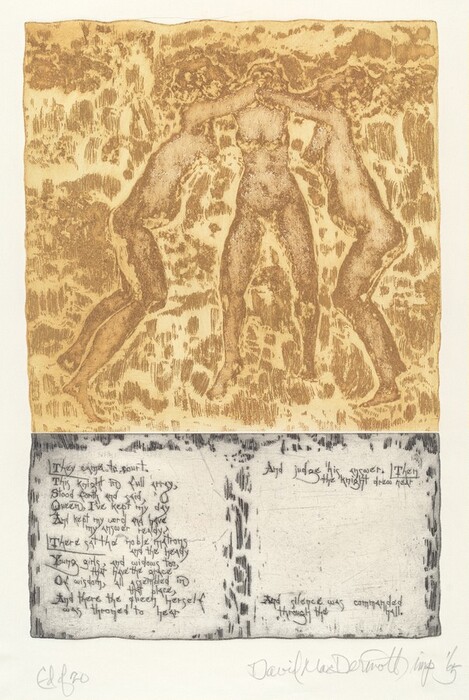 They came to court.
This knight in full array,
Stood forth and said, "O
Queen, I've kept my day
And kept my word and have
my answer ready."
There sat the noble matrons
and the heady
Young girls, and widows too,
that have the grace
Of wisdom, all assembled in
that place,
And there the queen herself
was throned to hear
And judge his answer. Then
the knight drew near
And silence was commanded
through the hall.
Ed of 20
David MacDermott imp '65